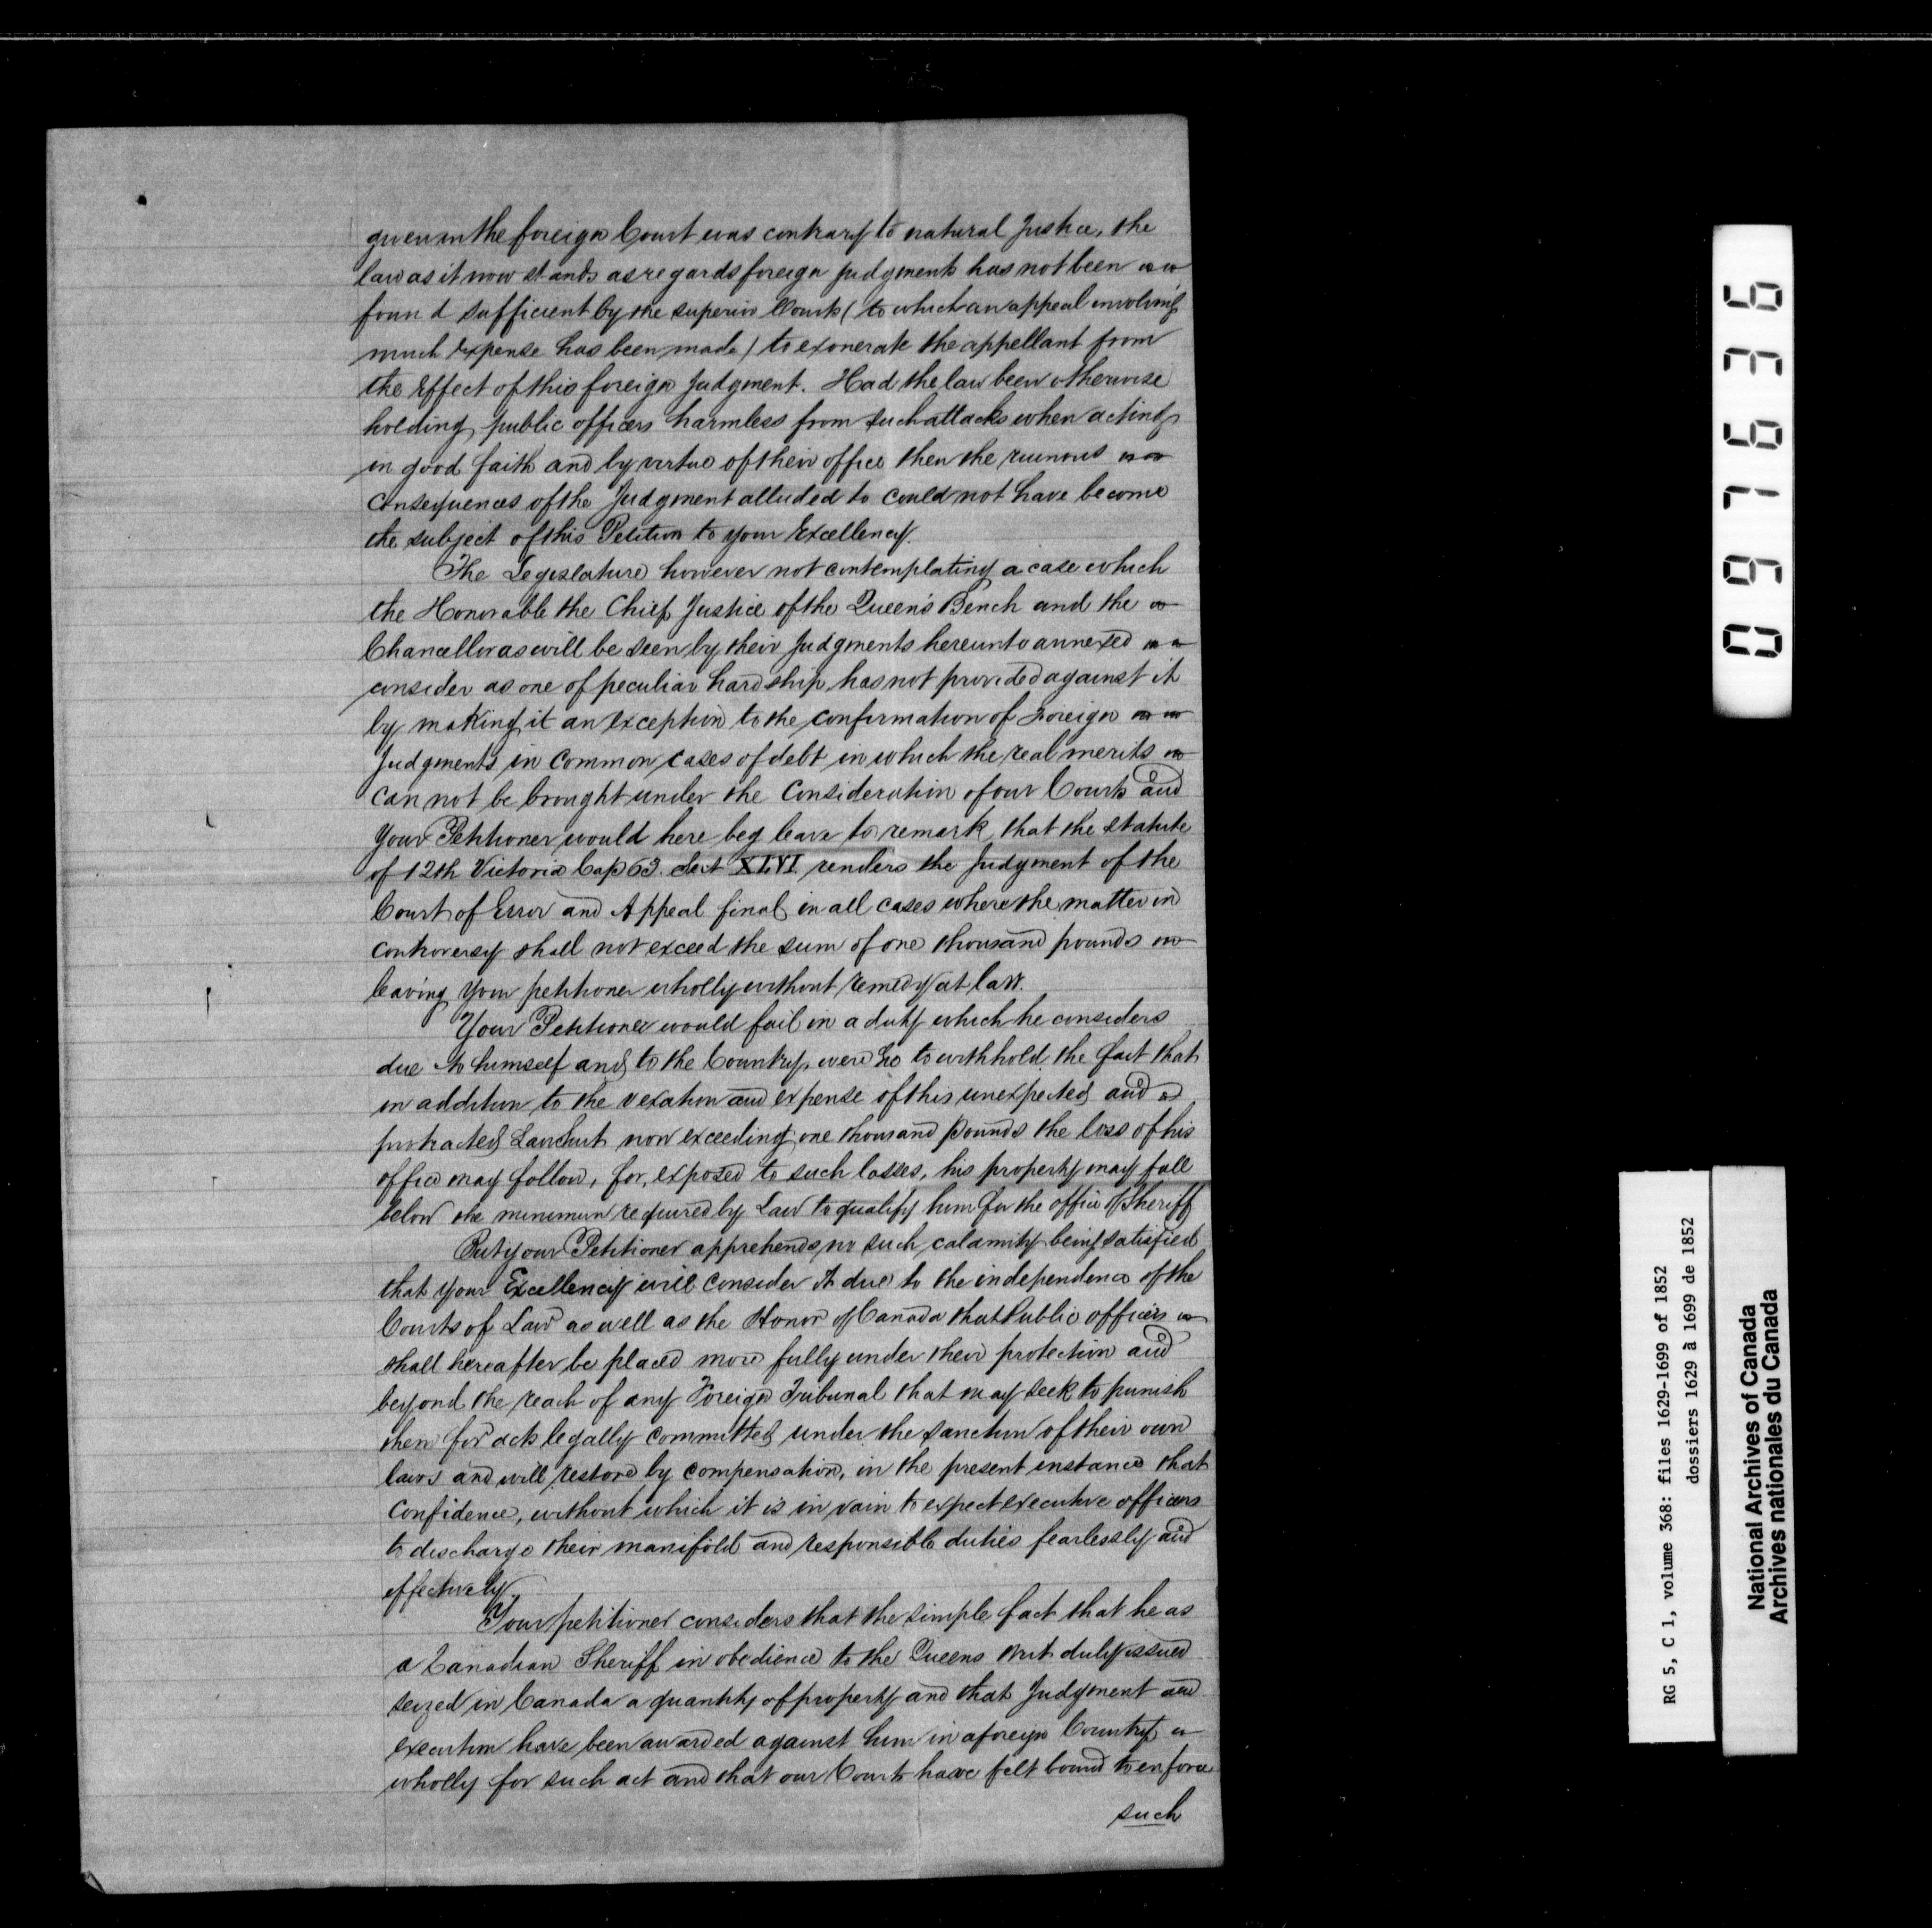 given in the foreign Court was contrary to natural Justice, the
law as it now stands as regards foreign judgments has not been
found sufficient by the superior Courts (to which an appeal involving
much expense has been made) to exonerate the appellant from
the Effect of this foreign Judgment. Had the law been otherwise
holding public officers harmless from such attacks when acting
in good faith and by virtue of their office then the ruinous
consequences of the Judgment alluded to could not have become
the subject of this Petition to your Excellency.
The Legislature however not contemplating a case which
the Honorable the Chief Justice of the Queen's Bench and the
Chancellor as will be seen by their Judgments hereunto annexed
consider as one of peculiar hardship, has not provided against it
by making it an exception to the confirmation of Foreign
Judgments in common cases of debt in which the real merits
can not be brought under the Consideration of our Courts and
Your Petitioner would here beg leave to remark, that the statute
of 12th Victoria Cap 63. Sect XLVI renders the Judgment of the
Court of Error and Appeal final in all cases where the matter in
controversy shall not exceed the sum of one thousand pounds
leaving your petitioner wholly without remedy at law.
Your Petitioner would fail in a duty which he considers
due to himself and to the Country, were he to withhold the fact that
in addition to the vexation and expense of this unexpected and
protracted LawSuit now exceeding one thousand pounds the loss of his
office may follow, for, exposed to such losses, his property may fall
below the minimum required by Law to qualify him for the office of Sheriff
But your Petitioner apprehends no such calamity being satisfied
that your Excellency will consider it due to the independence of the
Courts of Law as well as the Honor of Canada that Public officers
shall hereafter be placed more fully under their protection and
beyond the reach of any Foreign Tribunal that may seek to punish
them for acts legally committed under the sanction of their own
laws and will restore by compensation, in the present instance that
confidence, without which it is in vain to expect executive officers
to discharge their manifold and responsible duties fearlessly and
effectively.
Your petitioner considers that the simple fact that he as
a Canadian Sheriff in obedience to the Queens writ duly issued
seized in Canada a quantity of property and that Judgment and
execution have been awarded against him in a foreign Country
wholly for such act and that our Courts have felt bound to enforce
such
097636
RG 5, C 1, volume 368: files 1629-1699 of 1852
dossiers 1629 à 1699 de 1852
National Archives of Canada
Archives nationales du Canada